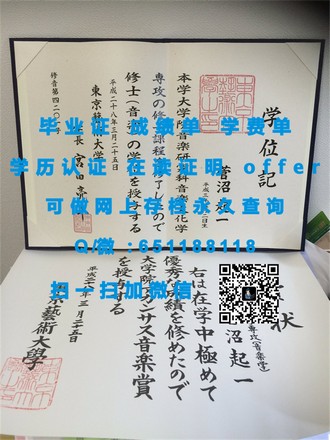 学位記
菅沼起一
本学大学院音楽研究科音楽文化学
専攻の修士課程を修了したので
修士(音楽)の学位を授与する
平成二十八年三月二十五日
東京藝術大学長
修音第四二〇六号
毕业证 成绩单 学费单
学历认证 在读证明 offer
可做网上存档永久查询
Q/微:651188118
扫一扫加微信
状
沼起一
右は在学中極めて
優秀な成績を修めたので
大学院アカンサス音楽賞
を授与する
三月二十五日
京藝術大學